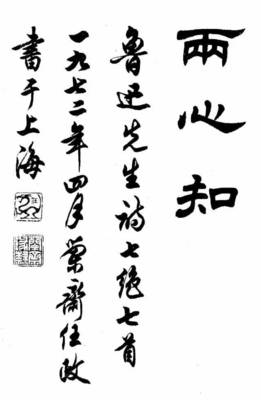 兩心知
鲁迅先生诗七绝七首
一九七二年四月兰斋任政
書于上海